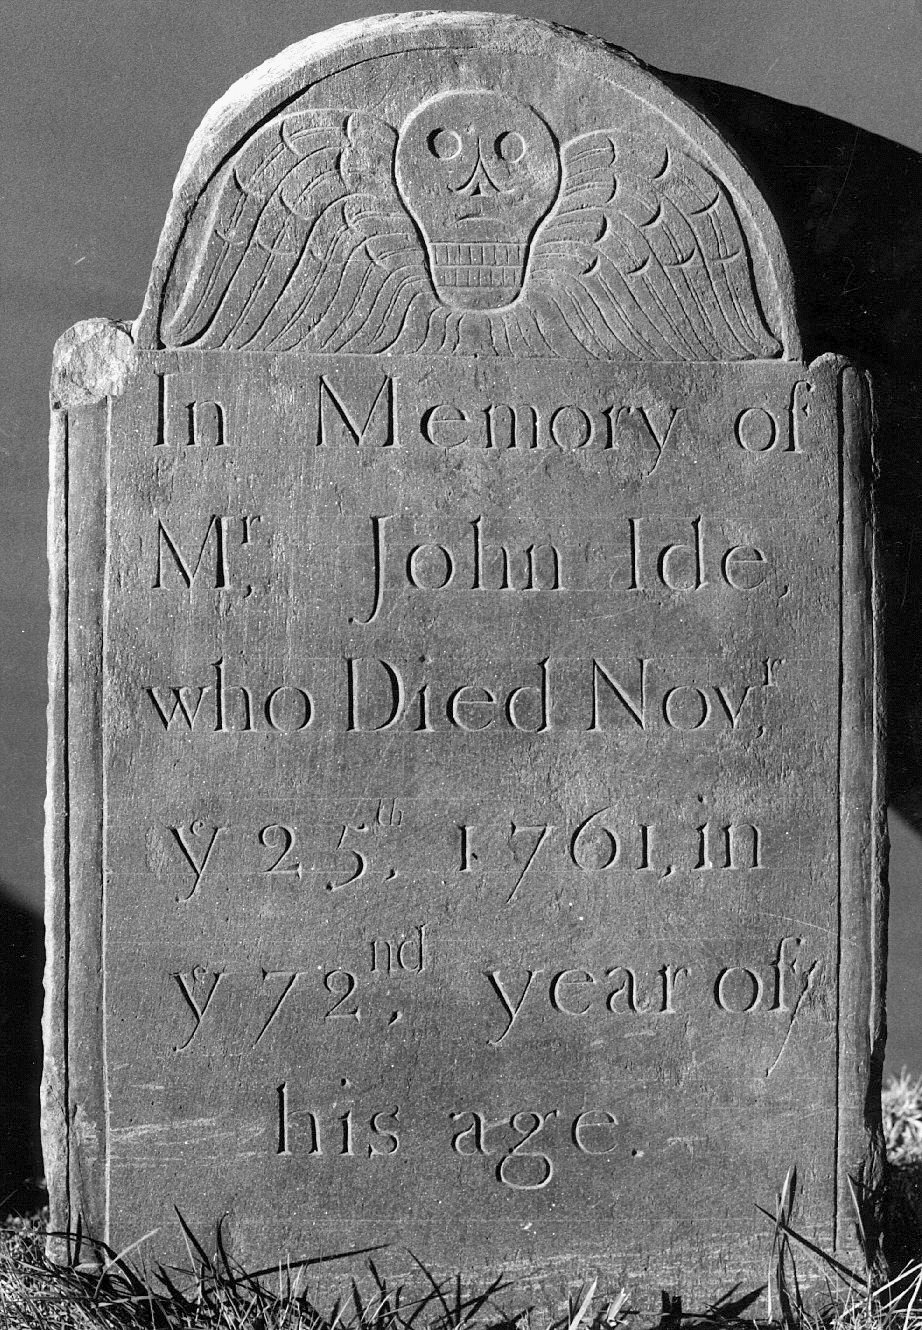 In Memory of
Mr, John Ide,
who Died Novr,
ye 25th, 1761, in
ye 72nd, year of
his age.